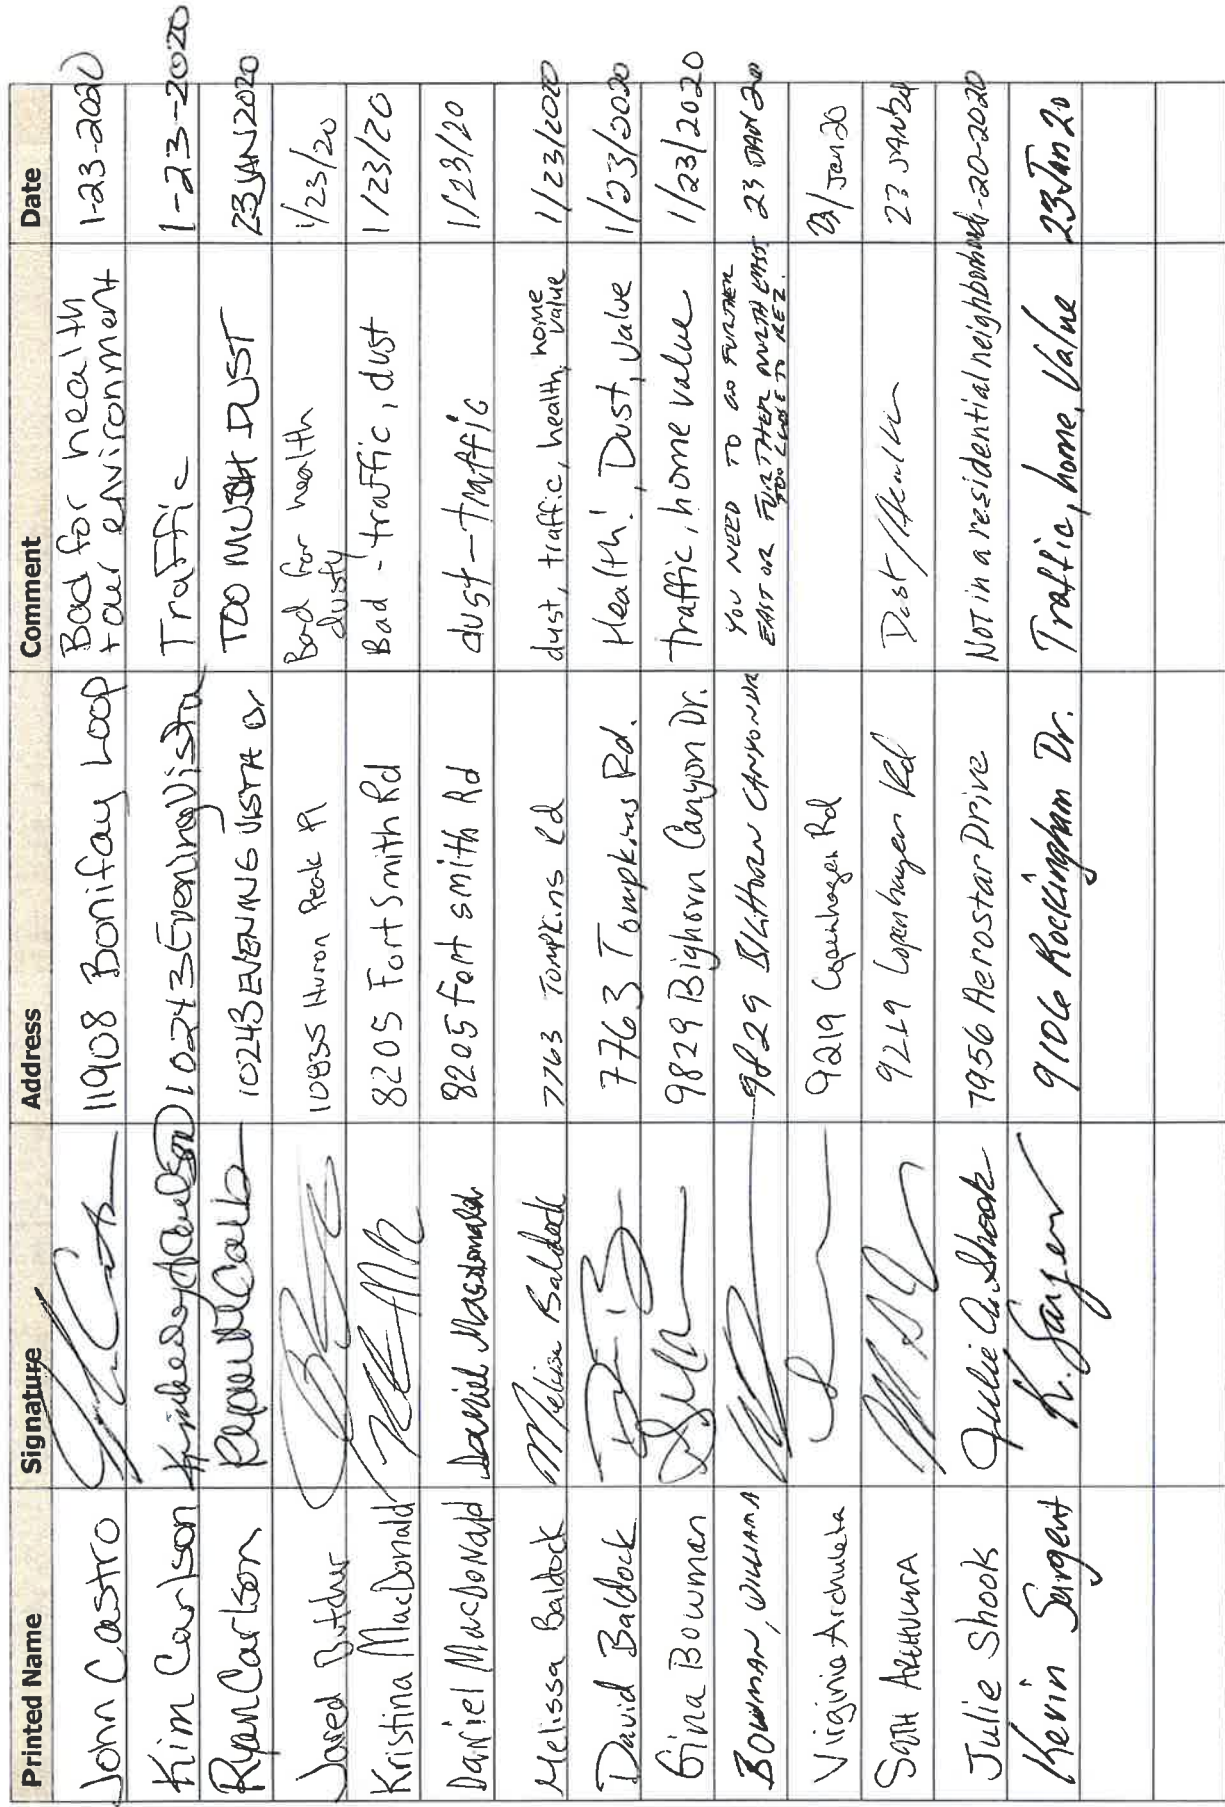 Printed Name Signature Address Comment Date
John Castro 11908 Bonifay Loop Bad for health 1-23-2020
+ our environment
Kim Carlson Kimberly Carlson 10243 Evening Vista Traffic 1-23-2020
Ryan Carlson 10243 EVENING VISTA Dr TOO MUCH DUST 23JAN2020
Jared Butcher 10835 Huron Peak Pl Bad for health 1/23/20
dusty
Kristina MacDonald 8205 Fort Smith Rd Bad - traffic, dust 1/23/20
Daniel MacDonald Daniel Macdonald 8205 Fort smith Rd dust - traffic 1/23/20
Melissa Baldock Melissa Baldock 7763 Tompkins Rd dust, traffic, health, home value 1/23/2020
David Baldock 7763 Tompkins Rd. Health!, Dust, Value 1/23/2020
Gina Bowman 9829 Bighorn Canyon Dr. Traffic, home value 1/23/2020
BOWMAN, WILLIAM A 9829 BIGHORN CANYON DR YOU NEED TO GO FURTHER 23 JAN 20
EAST OR FURTHER NORTH EAST
TOO CLOSE TO REZ.
Virginia Archuleta 9219 Copenhagen Rd 23/Jan 20
ARCHULETA 9219 Copenhagen Rd Dust/Health 23 JAN 20
Julie Shook Julie A. Shook 7956 Aerostar Drive Not in a residential neighborhood 1-20-2020
Kevin Sargent K. Sargent 9106 Rockingham Dr. Traffic, home, Value 23 Jan 20